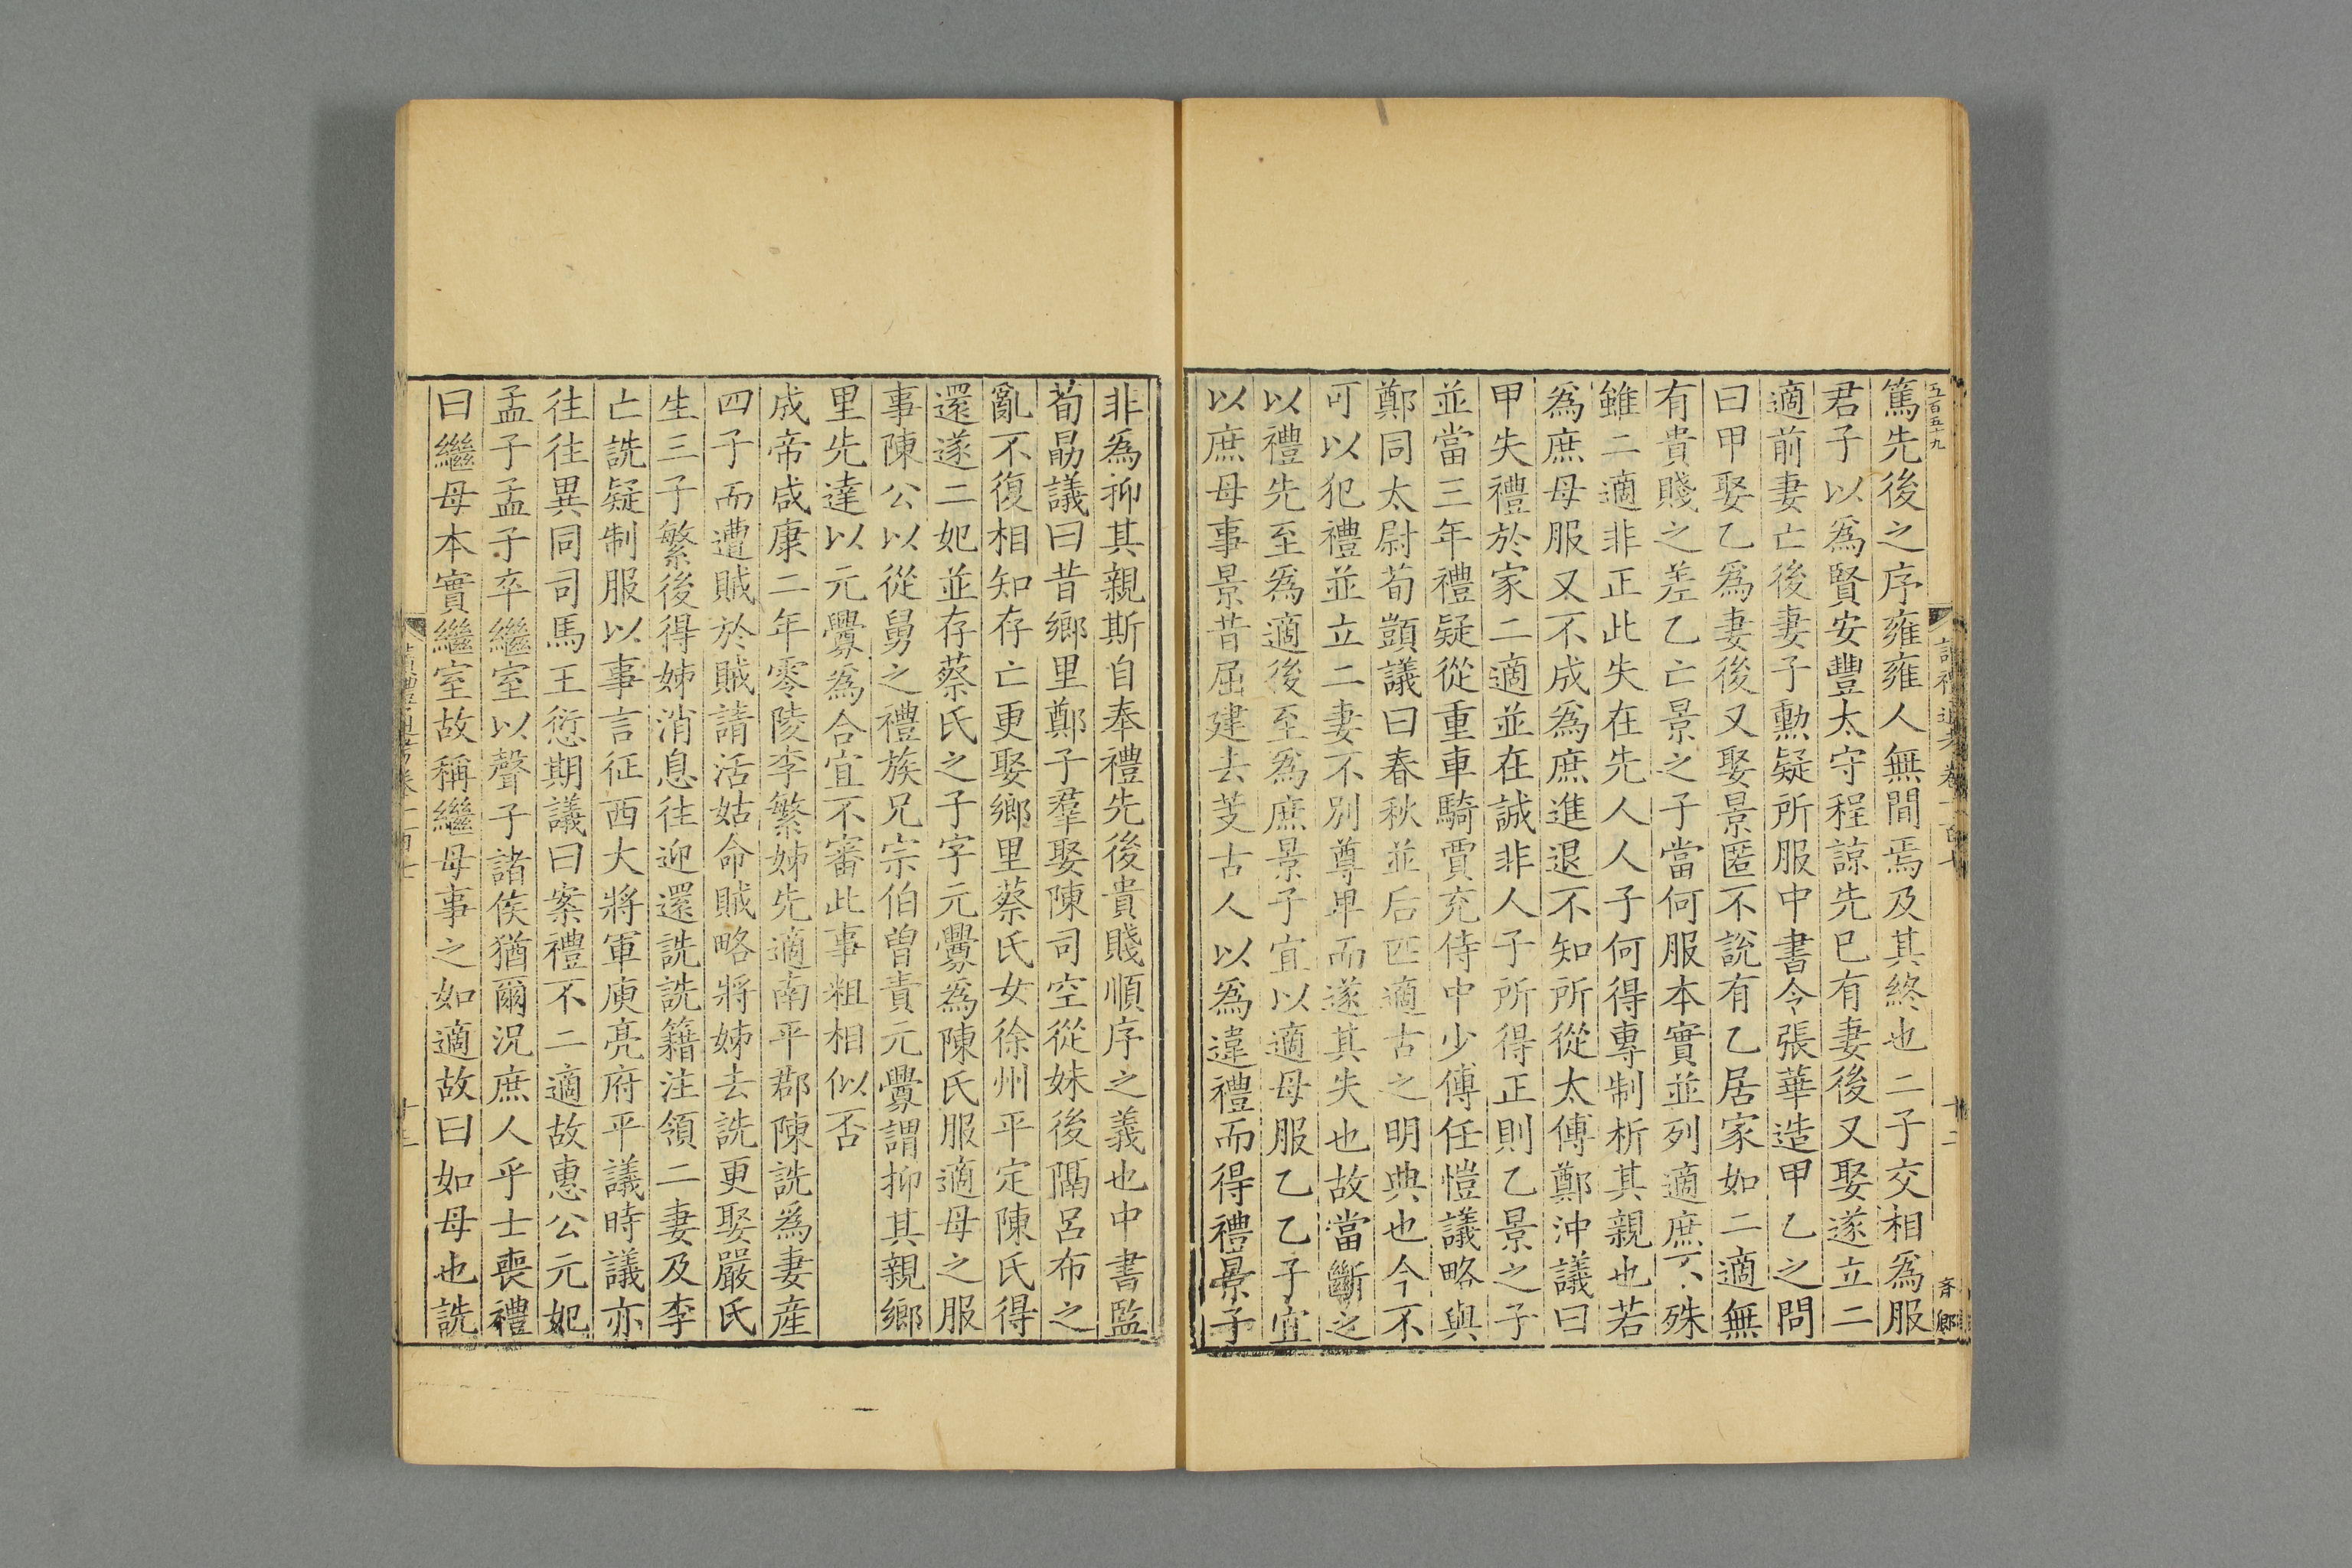 五百五十九
篤先後之序雍雍人無間焉及其終也二子交相爲服
君子以爲賢安豐太守程諒先已有妻後又娶遂立二
適前妻亡後妻子勲疑所服中書令張華造甲乙之問
曰甲娶乙爲妻後又娶景匿不說有乙居家如二適無
有貴賤之差乙亡景之子當何服本實並列適庶不殊
雖二適非正此失在先人人子何得專制析其親也若
爲庶母服又不成爲庶進退不知所從太傅鄭沖議曰
甲失禮於家二適並在誠非人子所得正則乙景之子
並當三年禮疑從重車騎賈充侍中少傅任愷議略與
鄭同太尉荀顗議曰春秋並后匹適古之明典也今不
可以犯禮並立二妻不別尊卑而遂其失也故當斷之
以禮先至爲適後至爲庶景子宜以適母服乙乙子宜
以庶母事景昔屈建去芰古人以爲違禮而得禮景子
非爲抑其親斯自奉禮先後貴賤順序之義也中書監
荀勗議曰昔鄉里鄭子羣娶陳司空從妹後隔呂布之
亂不復相知存亡更娶鄉里蔡氏女徐州平定陳氏得
還遂二妃並存蔡氏之子字元釁爲陳氏服適母之服
事陳公以從舅之禮族兄宗伯曾責元釁謂抑其親鄉
里先達以元釁爲合宜不審此事粗相似否
成帝咸康二年零陵李繁姊先適南平郡陳詵爲妻產
四子而遭賊於賊請活姑命賊略將姊去詵更娶嚴氏
生三子繁後得姊消息往迎還詵詵籍注領二妻及李
亡詵疑制服以事言征西大將軍庾亮府平議時議亦
往往異同司馬王愆期議曰案禮不二適故惠公元妃
孟子孟子卒繼室以聲子諸侯猶爾況庶人乎士喪禮
曰繼母本實繼室故稱繼母事之如適故曰如母也詵